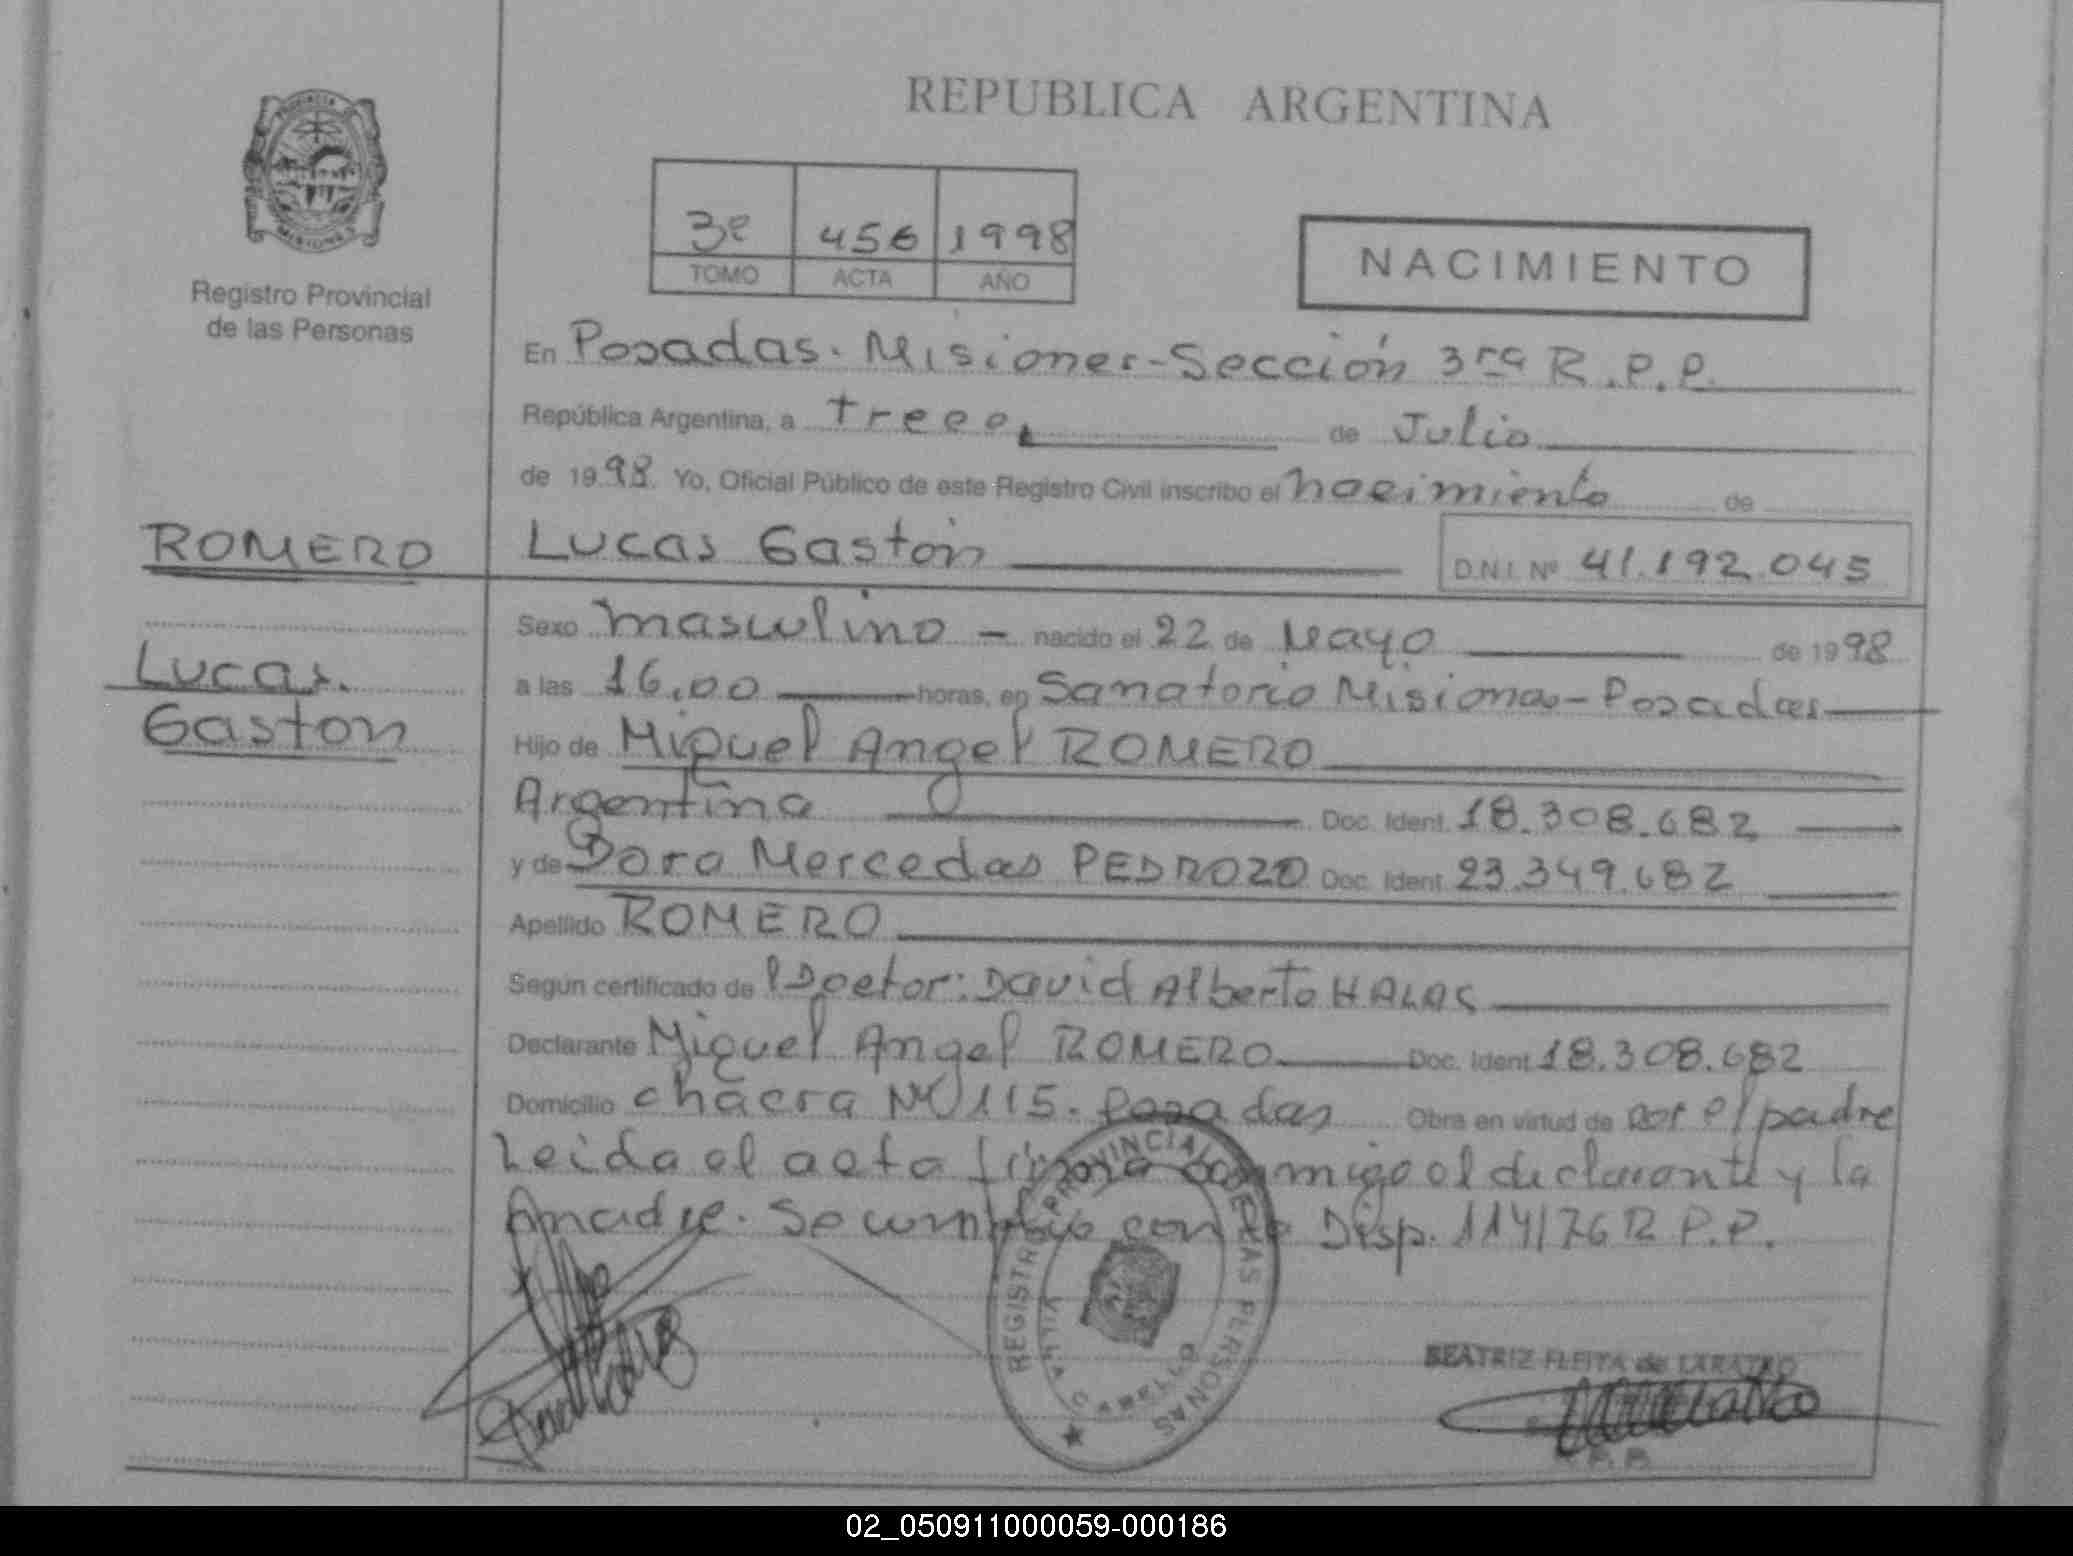 REPUBLICA ARGENTINA
PROVINCIA
MISIONES
Registro Provincial
de las Personas
3º 456 1998
TOMO ACTA AÑO
NACIMIENTO
En Posadas. Misiones-Sección 3ra R.P.P.
República Argentina, a trece, de Julio
de 1998. Yo, Oficial Público de este Registro Civil inscribo el nacimiento de
ROMERO
Lucas Gastón
D.N.I. Nº 41.192.045
Lucas
Gaston
Sexo masculino - nacido el 22 de Mayo de 1998
a las 16,00 horas, en Sanatorio Misiones-Posadas
Hijo de Miguel Angel ROMERO
Argentina Doc. Ident. 18.308.682
y de Dora Mercedes PEDROZO Doc. Ident. 23.349.682
Apellido ROMERO
Según certificado de Doctor: David Alberto HALAS
Declarante Miguel Angel ROMERO Doc. Ident. 18.308.682
Domicilio chacra Nº 115. Posadas Obra en virtud de por el padre
Leida el acta firma conmigo el declarante y la
madre. Se cumplió con la Disp. 114/76 R.P.P.
REGISTRO PROVINCIAL DE LAS PERSONAS
VILLA CABELLO
BEATRIZ FLEITA de LARATRO
02_050911000059-000186